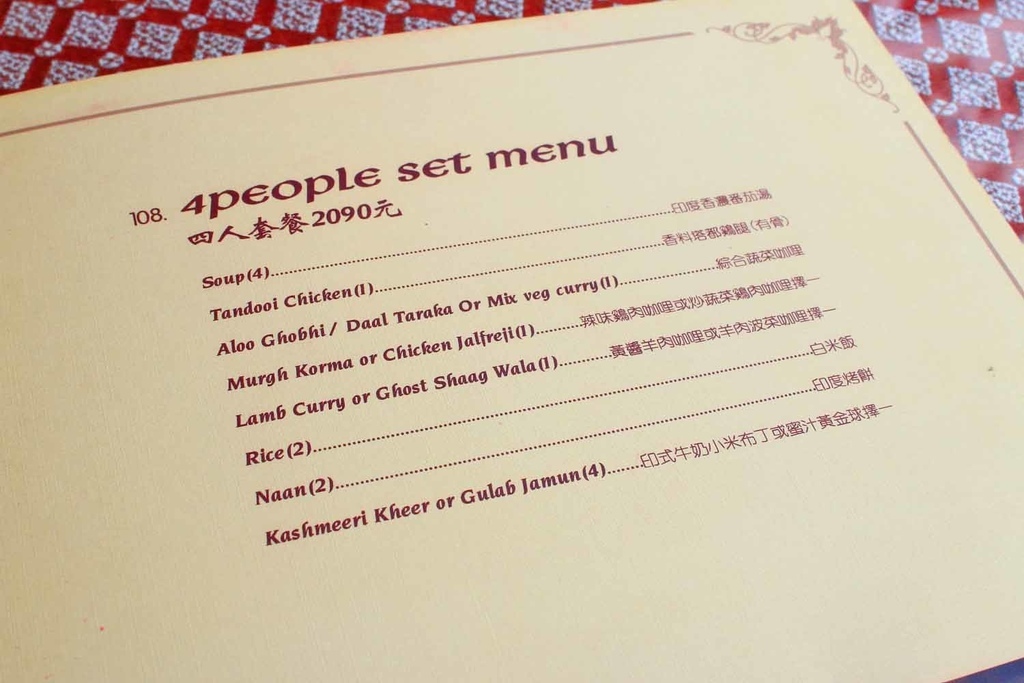 108. 4people set menu
四人套餐2090元
Soup(4)........................印度香濃番茄湯
Tandooi Chicken(1)........................香料塔都鷄腿(有骨)
Aloo Ghobhi / Daal Taraka Or Mix veg curry(1)............綜合蔬菜咖哩
Murgh Korma or Chicken Jalfreji(1)..........辣味鷄肉咖哩或炒蔬菜鷄肉咖哩擇一
Lamb Curry or Ghost Shaag Wala(1)..........黃醬羊肉咖哩或羊肉波菜咖哩擇一
Rice(2)........................白米飯
Naan(2)........................印度烤餅
Kashmeeri Kheer or Gulab Jamun(4).......印式牛奶小米布丁或蜜汁黃金球擇一